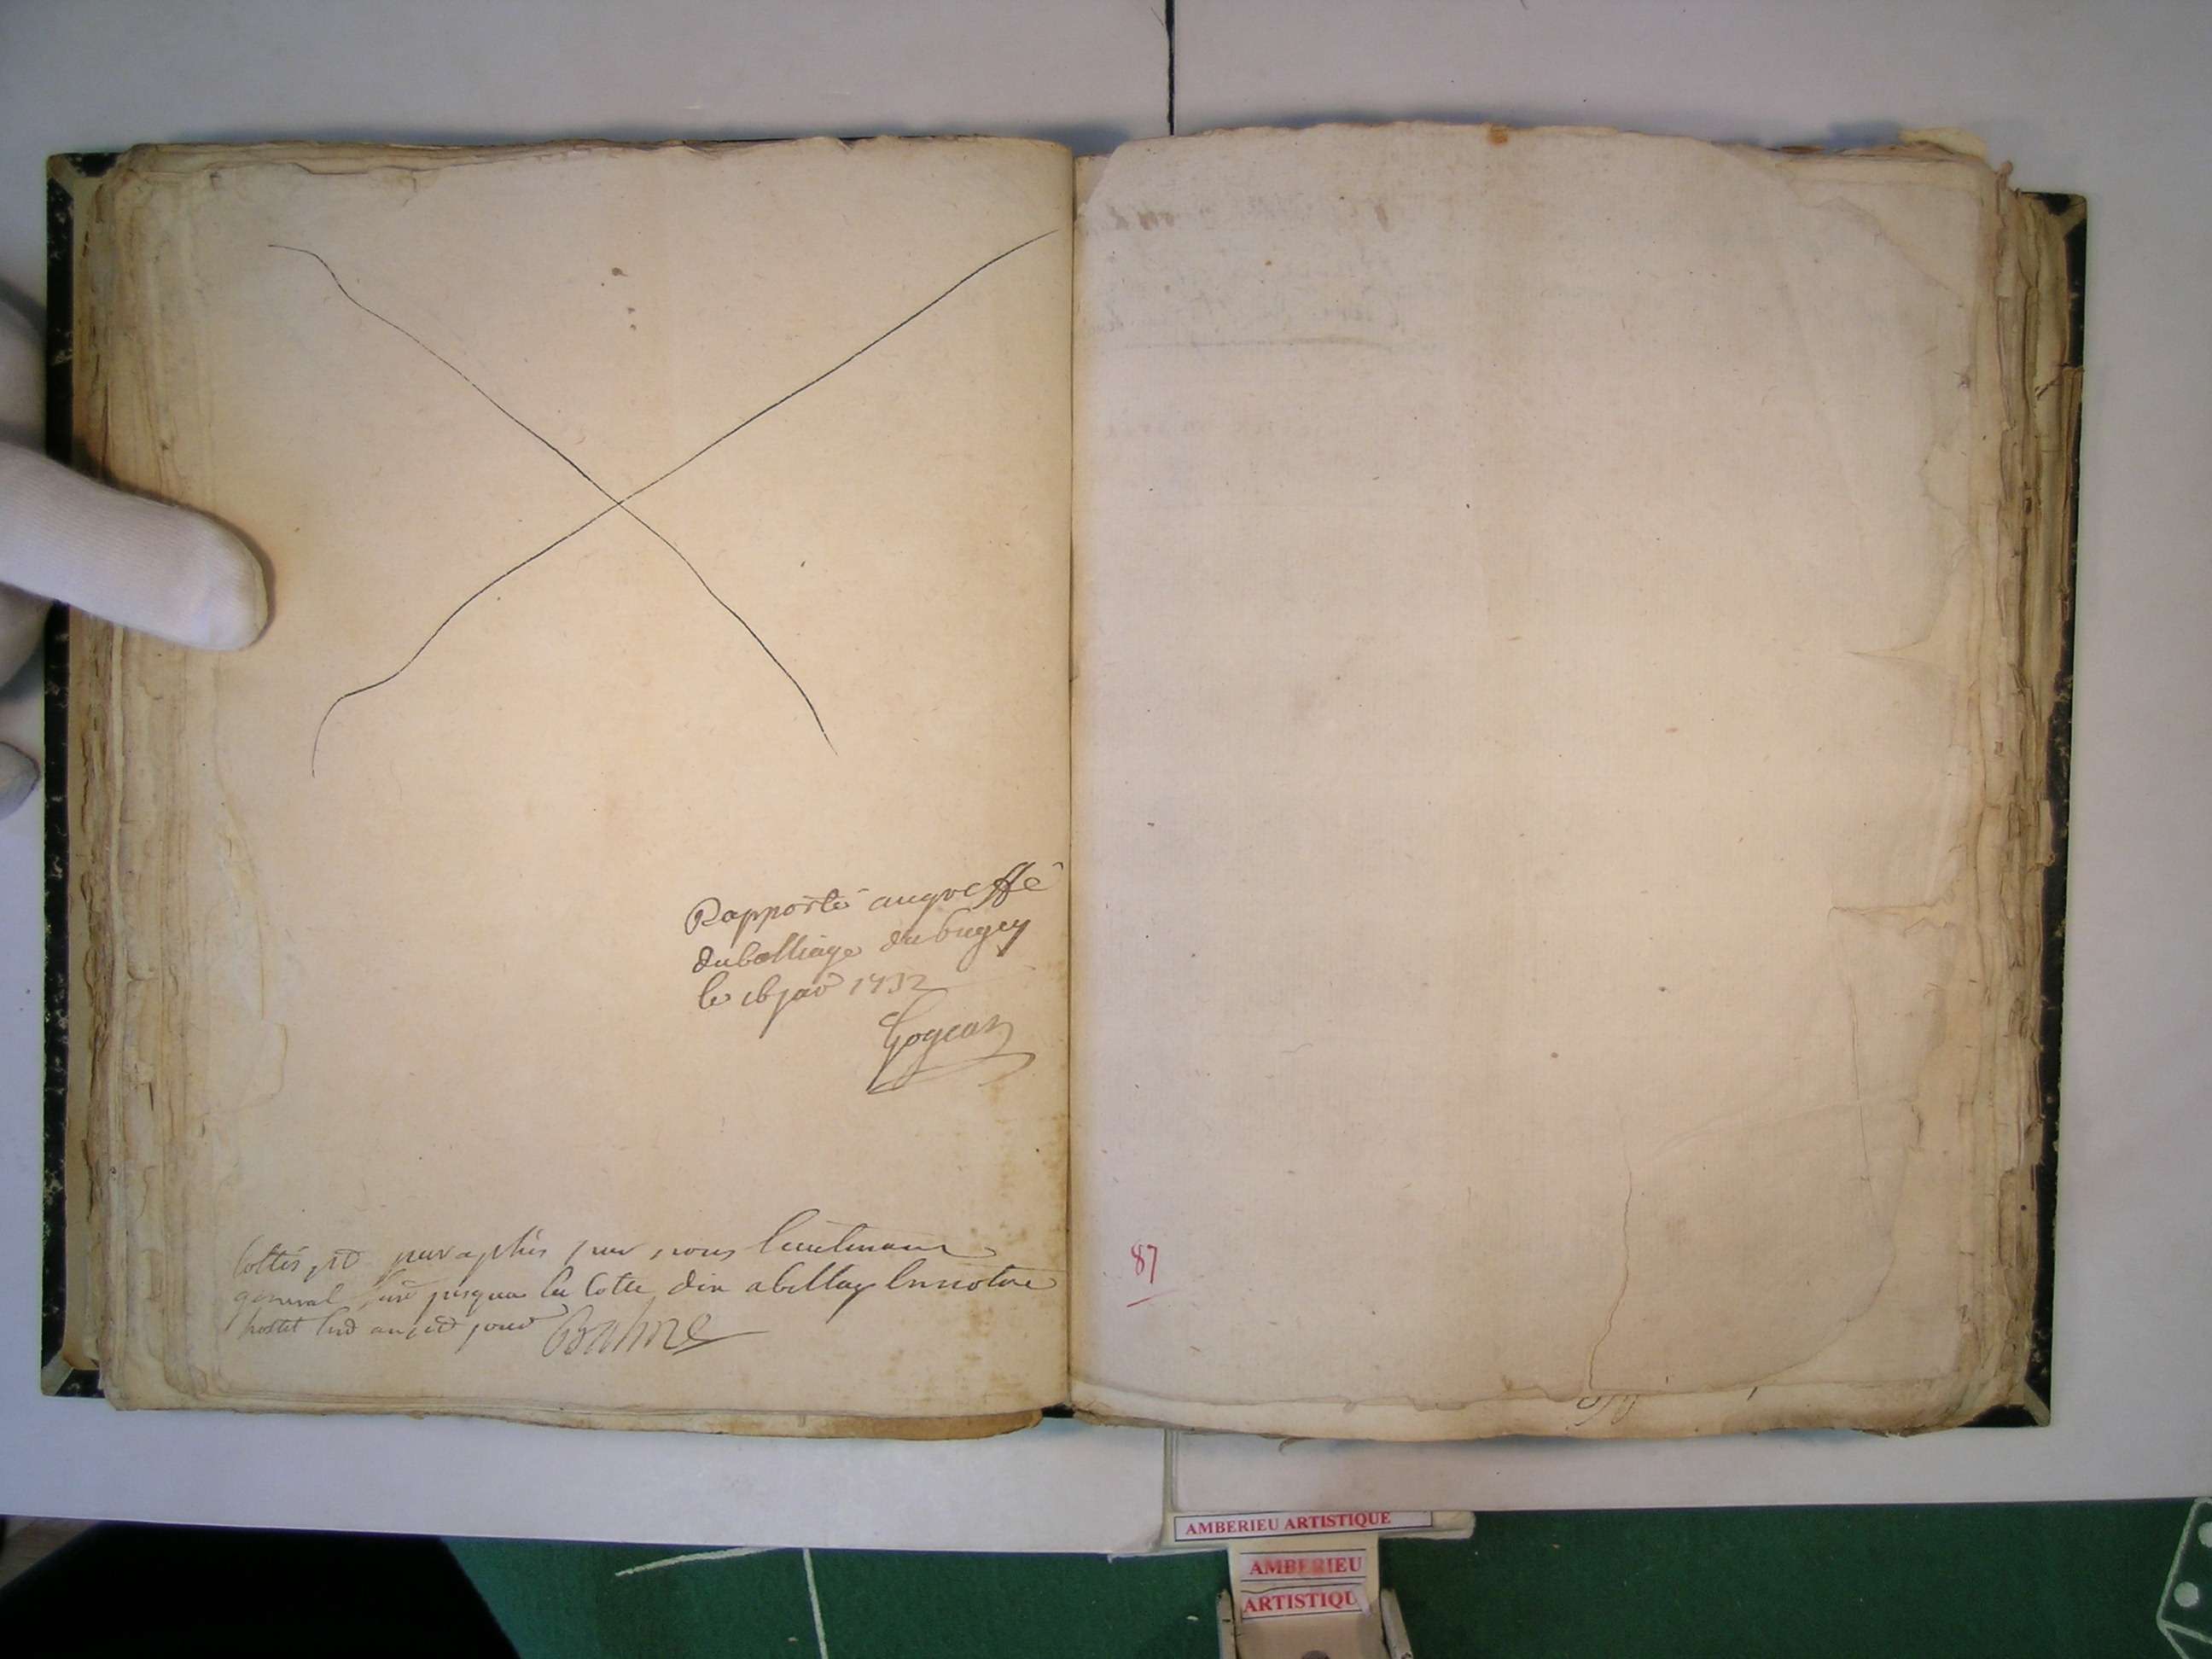 Rapporté augreffe
du balliage du bugey
le 16 jav 1732
Gojeat
Cottés et paraphés par nous lieutenant
general civ jusqua la cotte dix a bellay en notre
hostel lesd an et jour
87
AMBERIEU ARTISTIQUE
AMBERIEU
ARTISTIQU